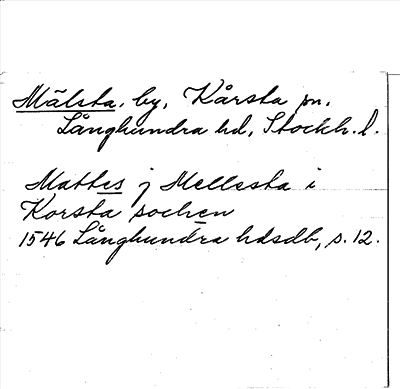 Mälsta, by, Kårsta sn,
Långhundra hd, Stockh. l.
Mattes j Mellesta i
Korsta sochen
1546 Långhundra hdsdb, s. 12.